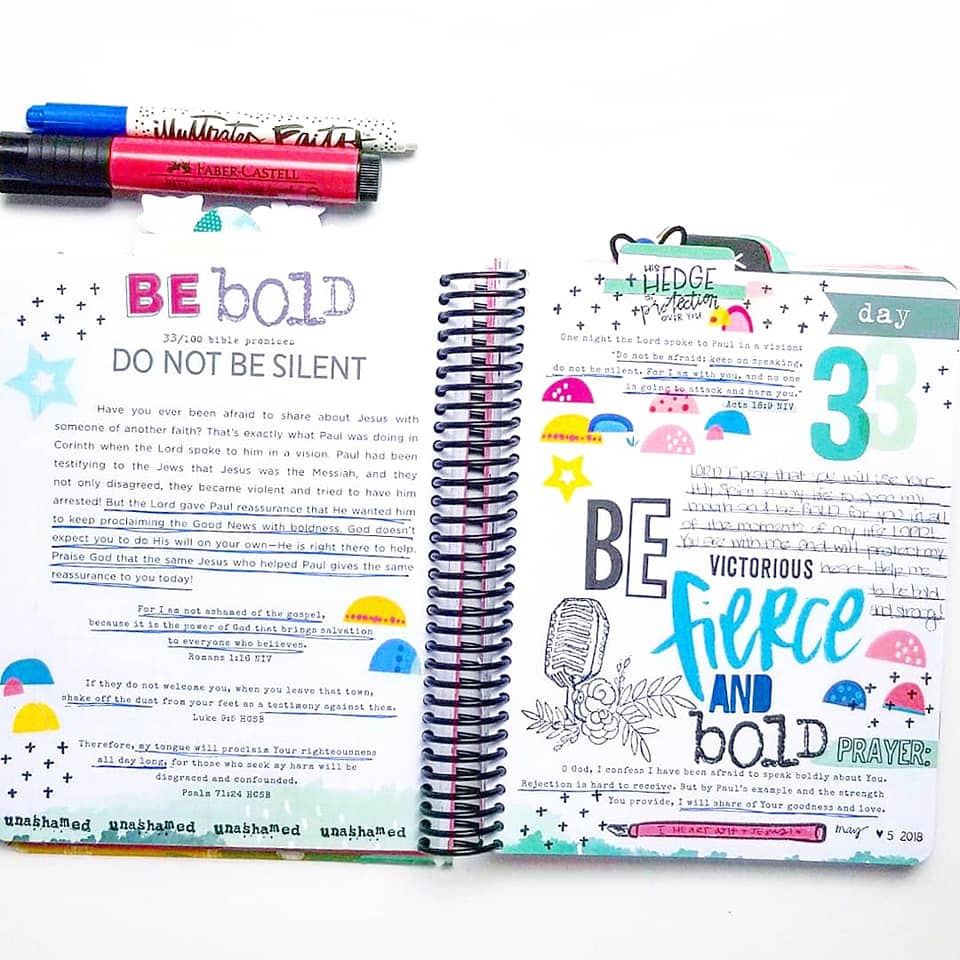 illustrated Faith
FABER-CASTELL
BE bold
33/100 bible promises
DO NOT BE SILENT
Have you ever been afraid to share about Jesus with
someone of another faith? That's exactly what Paul was doing in
Corinth when the Lord spoke to him in a vision. Paul had been
testifying to the Jews that Jesus was the Messiah, and they
not only disagreed, they became violent and tried to have him
arrested! But the Lord gave Paul reassurance that He wanted him
to keep proclaiming the Good News with boldness. God doesn't
expect you to do His will on your own—He is right there to help.
Praise God that the same Jesus who helped Paul gives the same
reassurance to you today!
For I am not ashamed of the gospel,
because it is the power of God that brings salvation
to everyone who believes.
Romans 1:16 NIV
If they do not welcome you, when you leave that town,
shake off the dust from your feet as a testimony against them.
Luke 9:5 HCSB
Therefore, my tongue will proclaim Your righteousness
all day long, for those who seek my harm will be
disgraced and confounded.
Psalm 71:24 HCSB
unashamed unashamed unashamed unashamed
HIS
HEDGE
of
protection
OVER YOU
day
33
One night the Lord spoke to Paul in a vision:
"Do not be afraid; keep on speaking,
do not be silent. For I am with you, and no one
is going to attack and harm you."
Acts 18:9 NIV
LORD I pray that you will use your
Holy Spirit in my life to open my
mouth and be bold for you in all
of the moments of my life LORD!
You are with me and will protect my
heart. Help me
to be bold
and strong!
BE
VICTORIOUS
fierce
AND
bold
PRAYER:
O God, I confess I have been afraid to speak boldly about You.
Rejection is hard to receive. But by Paul's example and the strength
You provide, I will share of Your goodness and love.
I HEART ART + JESUS!
may ♥ 5 2018